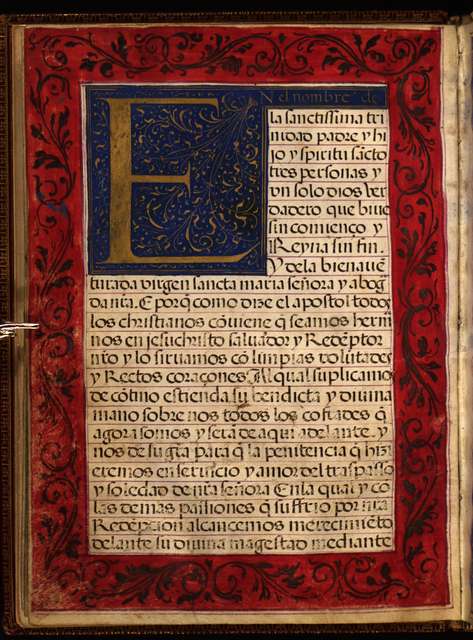 EN el nombre de
la sanctissima tri
nidad padre y hi
jo y spiritu sācto
tres personas y
vn solo dios ver
dadero que biue
sin comienço y
Reyna sin fin.
Y de la bienauē
turada virgen sancta maria señora y abog
da nr̄a. E porq̄ como dize el apostol todos
los christianos cōuiene q̄ seamos herm̄
nos en jesuchristo saluador y Redēptor
nr̄o y lo siruamos cō limpias volūtades
y Rectos coraçones. Al qual suplicamos
de cōtino estienda su bendicta y diuina
mano sobre nos todos los cofrades q̄
agora somos y serā de aqui adelante. y
nos de su gr̄a para q̄ la penitencia q̄ hizi
eremos en seruicio y amor del traspasso
y soledad de nr̄a señora En la qual y cō
las demas passiones q̄ suffrio por nr̄a
Redēpcion alcancemos merecimiēto
delante su diuina magestad mediante